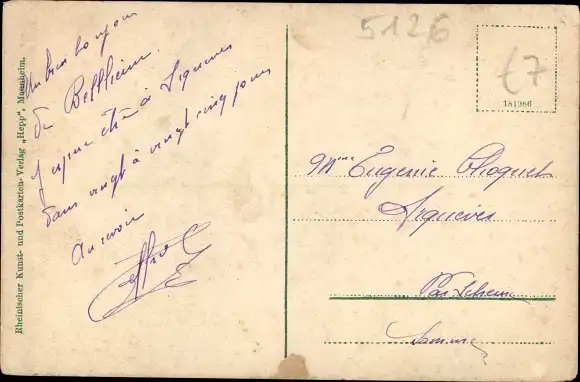 Un bien bonjour
de Bellheim.
J'espère être à Ligneres
dans vingt à vingt cinq jours
Au revoir
Rheinischer Kunst- und Postkarten-Verlag „Hepp", Mannheim.
5126
£7
181986
Mme Eugenie Choquet
Ligneres
Par
Somme